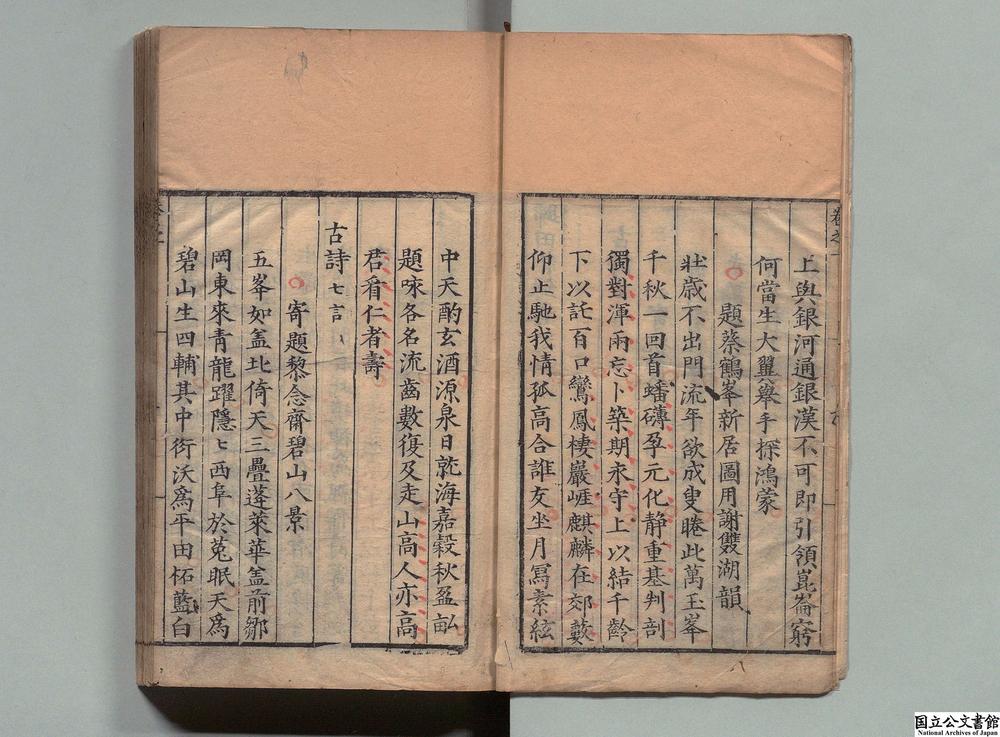 卷之一
上與銀河通銀漢不可即引領崑崙窮
何當生大翼舉手探鴻蒙
題蔡鶴峯新居圖用謝雙湖韻
壯歲不出門流年欲成叟睠此萬玉峯
千秋一回首蟠礴孕元化靜重基判剖
獨對渾兩忘卜築期永守上以結千齡
下以託百口鸞鳳棲巖崕麒麟在郊藪
仰止馳我情孤高合誰友坐月寫素絃
中天酌玄酒源泉日就海嘉穀秋盈畝
題咏各名流齒數復及走山高人亦高
君看仁者壽
古詩七言
寄題黎念齋碧山八景
五峯如盖北倚天三疊蓬萊華盖前鄒
岡東來青龍躍隱〻西阜於菟眠天爲
碧山生四輔其中衍沃爲平田柘藍白
国立公文書館
National Archives of Japan